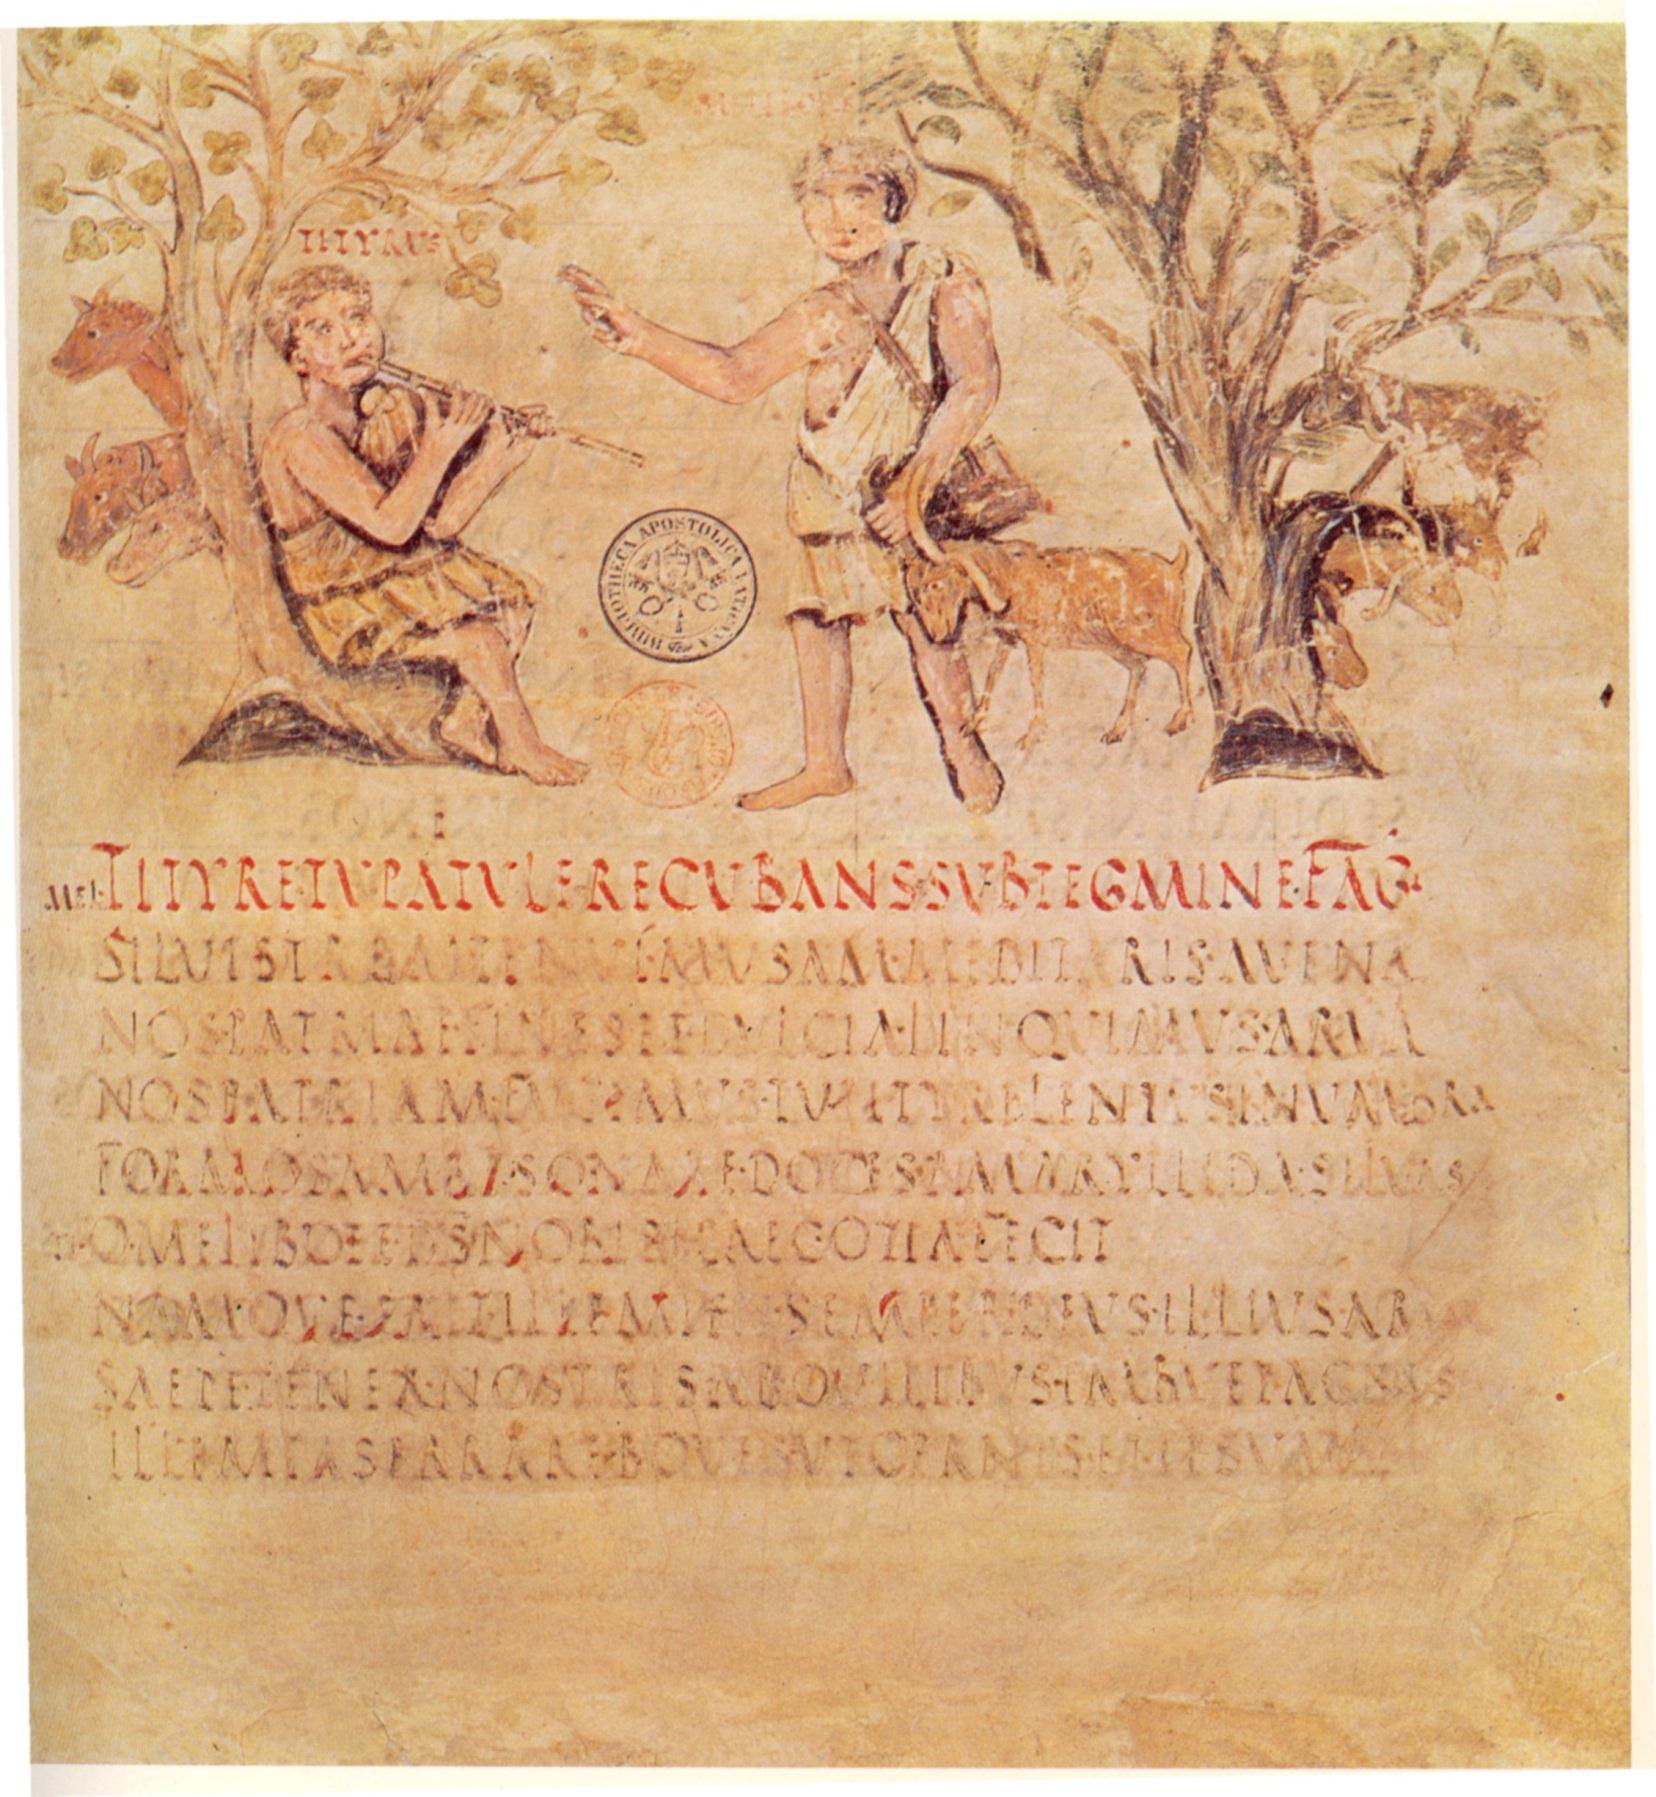 TITYRUS
BIBLIOTHECA APOSTOLICA VATICANA
MEL TITYRETVPATVLERECVBANSSVBTEGMINEFAGI
SILVESTREMTENVIMVSAMMEDITARISAVENA
NOSPATRIAEFINESETDVLCIALINQVIMVSARVA
NOSPATRIAMFVGIMVSTVTITYRELENTVSINVMBRA
FORMOSAMRESONAREDOCESAMARYLLIDASILVAS
OMELIBOEEDEVSNOBISHAECOTIAFECIT
NAMQVEERITILLEMIHISEMPERDEVSILLIVSAR
SAEPETENERNOSTRISABOVILIBVS AGNVS
ILLEMEASERRAREBOVESVTCERNISETIPSVM